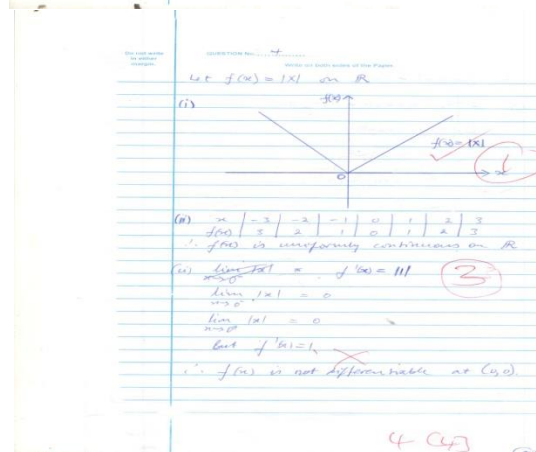 Do not write
in either
margin
QUESTION No. 4
Write on both sides of the Paper
Let f(x) = |x| on ℝ
(i)
f(x)
f(x) = |x|
1
0
x
(ii) x | -3 | -2 | -1 | 0 | 1 | 2 | 3
f(x) | 3 | 2 | 1 | 0 | 1 | 2 | 3
∴ f(x) is uniformly continuous on ℝ
f'(x) = |1|
3
lim |x| = 0
lim |x| = 0
but f'(x) = 1,
∴ f(x) is not differentiable at (0,0).
4 (4)